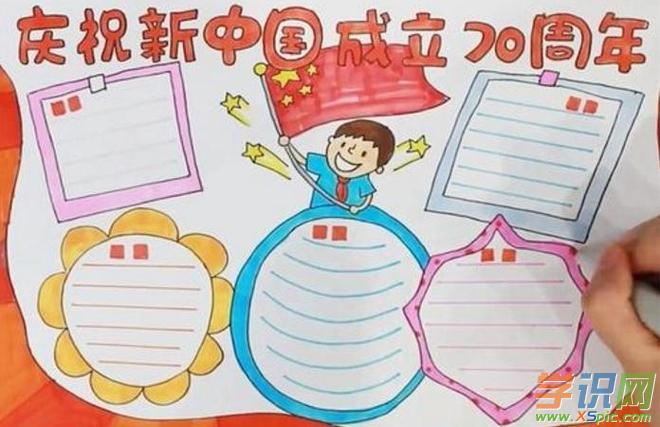 庆祝新中国成立70周年
学识网
www.XSpic.com